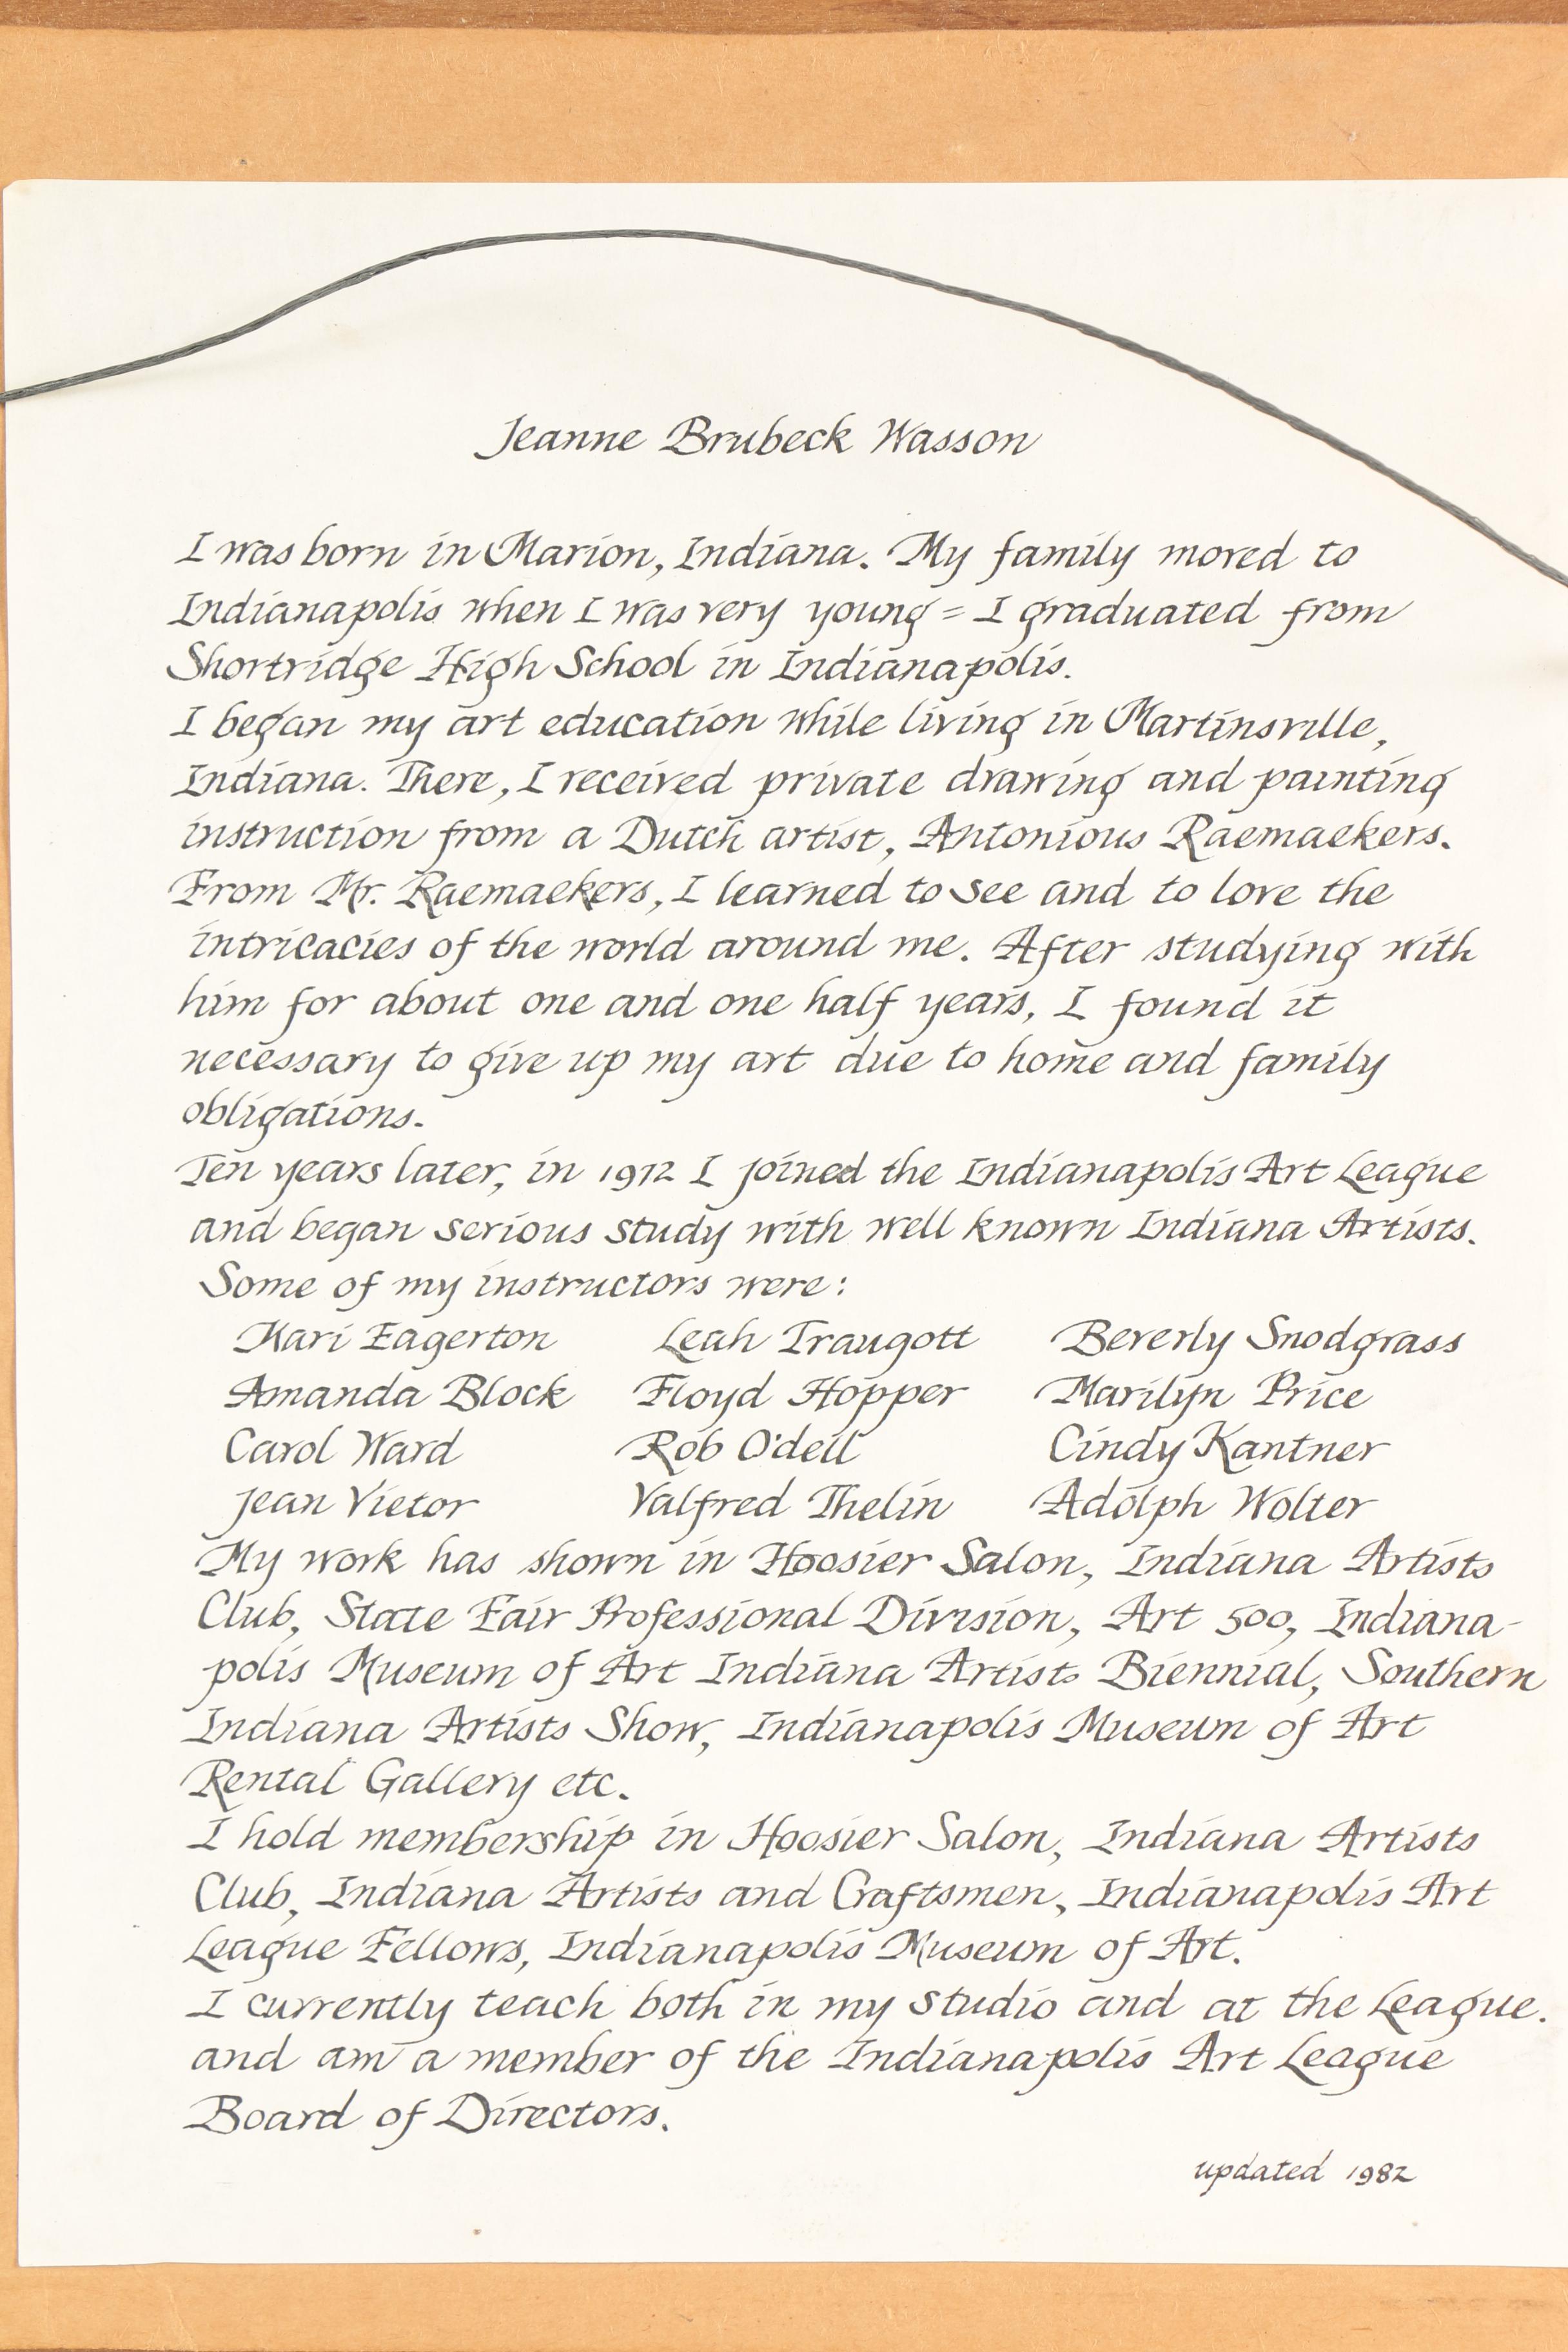 Jeanne Brubeck Wasson
I was born in Marion, Indiana. My family moved to
Indianapolis when I was very young = I graduated from
Shortridge High School in Indianapolis.
I began my art education while living in Martinsville,
Indiana. There, I received private drawing and painting
instruction from a Dutch artist, Antonious Raemaekers.
From Mr. Raemaekers, I learned to see and to love the
intricacies of the world around me. After studying with
him for about one and one half years, I found it
necessary to give up my art due to home and family
obligations.
Ten years later, in 1972 I joined the Indianapolis Art League
and began serious study with well known Indiana Artists.
Some of my instructors were:
Kari Eagerton Leah Traugott Beverly Snodgrass
Amanda Block Floyd Hopper Marilyn Price
Carol Ward Rob O'dell Cindy Kantner
Jean Vietor Valfred Thelin Adolph Wolter
My work has shown in Hoosier Salon, Indiana Artists
Club, State Fair Professional Division, Art 500, Indiana-
polis Museum of Art Indiana Artists Biennial, Southern
Indiana Artists Show, Indianapolis Museum of Art
Rental Gallery etc.
I hold membership in Hoosier Salon, Indiana Artists
Club, Indiana Artists and Craftsmen, Indianapolis Art
League Fellows, Indianapolis Museum of Art.
I currently teach both in my studio and at the League.
and am a member of the Indianapolis Art League
Board of Directors.
updated 1982